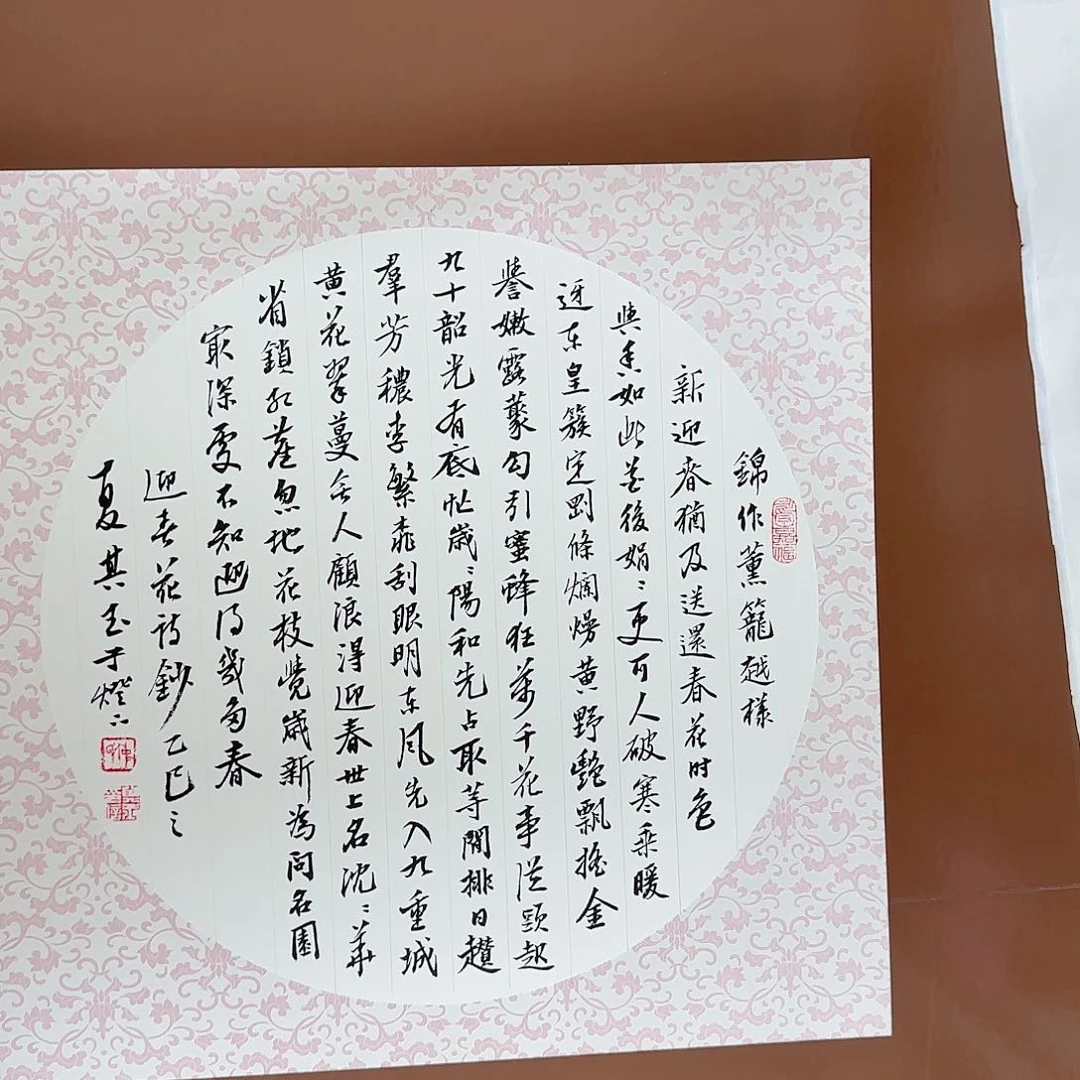 錦作薰籠越樣
新迎春猶及送還春花时色
與香如此花後娟〻更可人破寒乘暖
迓东皇簇定剛條爛熳黄野艷飄搖金
譽嫩露蕤勾引蜜蜂狂萬千花事從頸起
九十韶光有底忙歲〻陽和先占取等閒排日趲
羣芳穠李繁桃刮眼明东风先入九重城
黄花翠蔓無人顧浪得迎春世上名沈〻華
省鎖红塵忽地花枝覺歲新為问名園
最深處不知迎得幾多春
迎春花诗鈔乙巳之
夏其玉于燈下